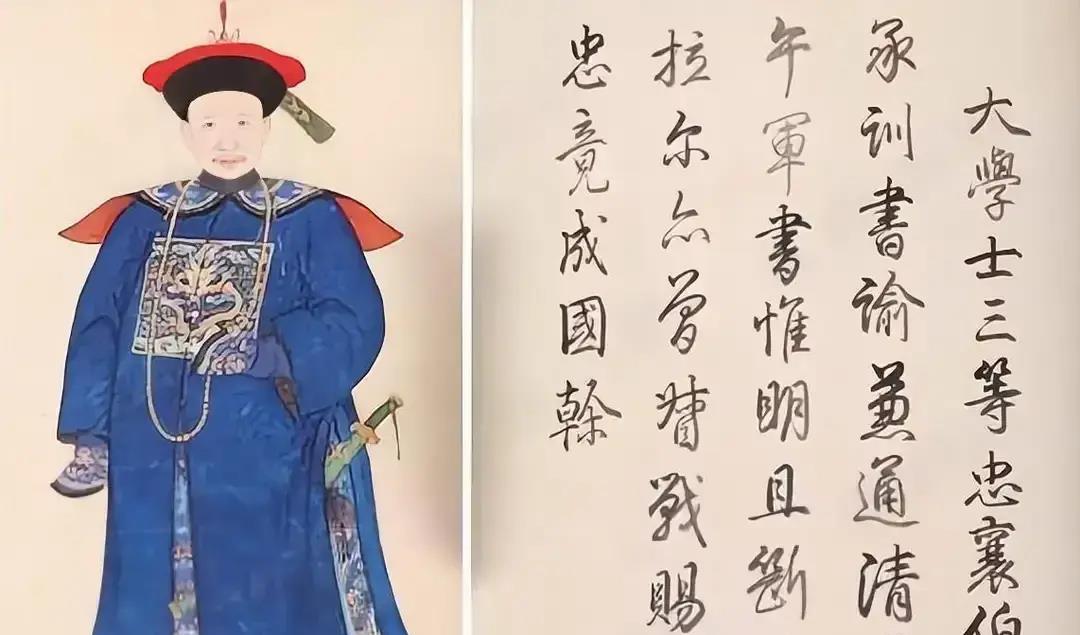 大學士三等忠襄伯
承訓書諭兼通清
午軍書惟明且斷
拉尔亦曾督戰賜
忠竟成國幹